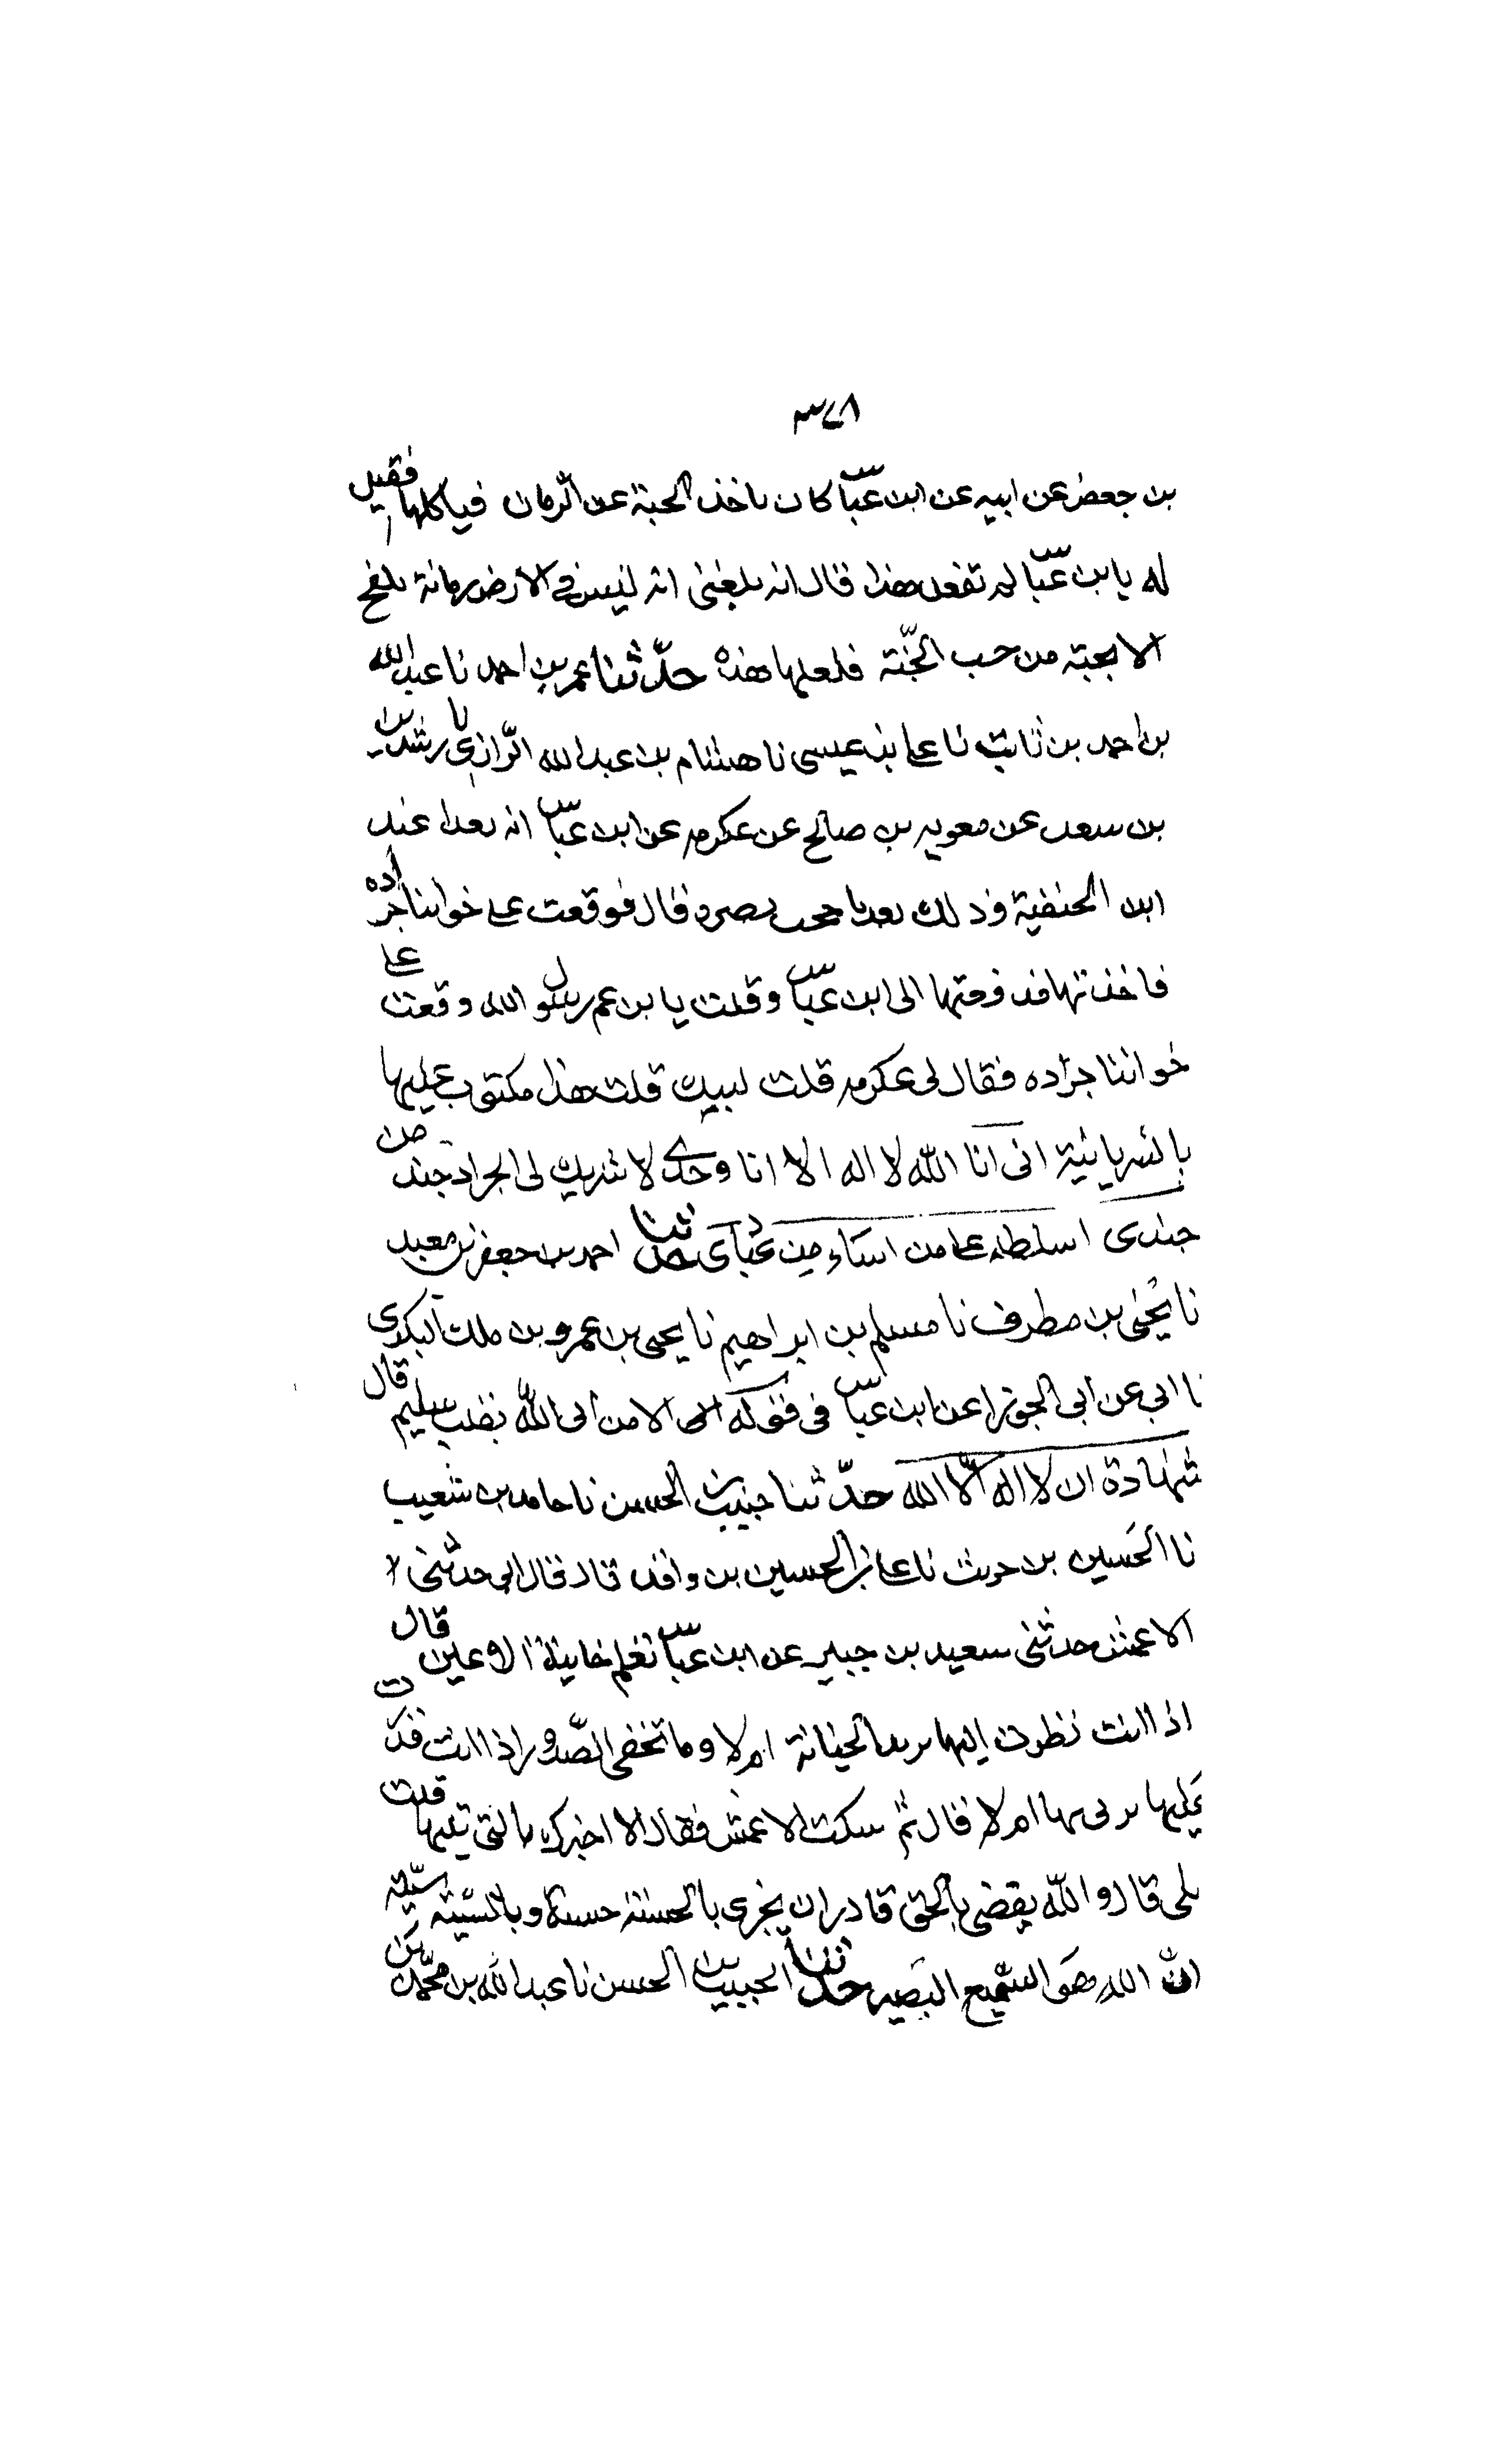 ٣٧٨
بن جعفر عن ابيه عن ابن عباس كان ياخذ الحبة عن الرمان فياكلها فقيل
له يا بن عباس لم تفعل هذا قال انه بلغنى انه ليس فى الارض رمانة تلقح
الا بحبة من حب الجنة فلعلها هذه حدثنا عمر بن احمد نا عبد الله
بن احمد بن ثابت نا على بن عيسى نا هشام بن عبد الله الرازى نا رشدين
بن سعد عن معوية بن صالح عن عكرمه عن ابن عباس انه تغدا عند
ابن الحنفية وذلك بعد ما حجب بصره قال فوقعت على خواننا جراده
فاخذتها فدفعتها الى ابن عباس وقلت يا بن عم رسول الله وقعت على
خواننا جراده فقال لى عكرمه قلت لبيك قلت هذا مكتوب عليها
بالسريانية انى انا الله لا اله الا انا وحدى لا شريك لى الجراد جند من
جندى اسلطه على من اشاء من عبادى حدثنا احمد بن جعفر بن معبد
نا يحيى بن مطرف نا مسلم بن ابراهيم نا يحيى بن عمرو بن ملك البكرى
نا ابى عن ابى الجوزا عن ابن عباس فى قوله الا من اتى الله بقلب سليم قال
شهادة ان لا اله الا الله حدثنا حبيب بن الحسن نا حامد بن شعيب
نا الحسين بن حريث نا على بن الحسين بن واقد قال قال ابى حدثنى
الاعمش حدثنى سعيد بن جبير عن ابن عباس تعلم خاينة الاعين قال
اذا انت نظرت اليها تريد الخيانة ام لا وما تخفى الصدور اذا انت قدرت
عليها تزنى بها ام لا قال ثم سكت الاعمش فقال الا اخبرك بالتى تليها قلت
بلى قال والله يقضى بالحق قادر ان يجزى بالحسنة حسنة وبالسيئة سيئة
ان الله هو السميع البصير حدثنا الحبيب بن الحسن نا عبد الله بن محمد بن